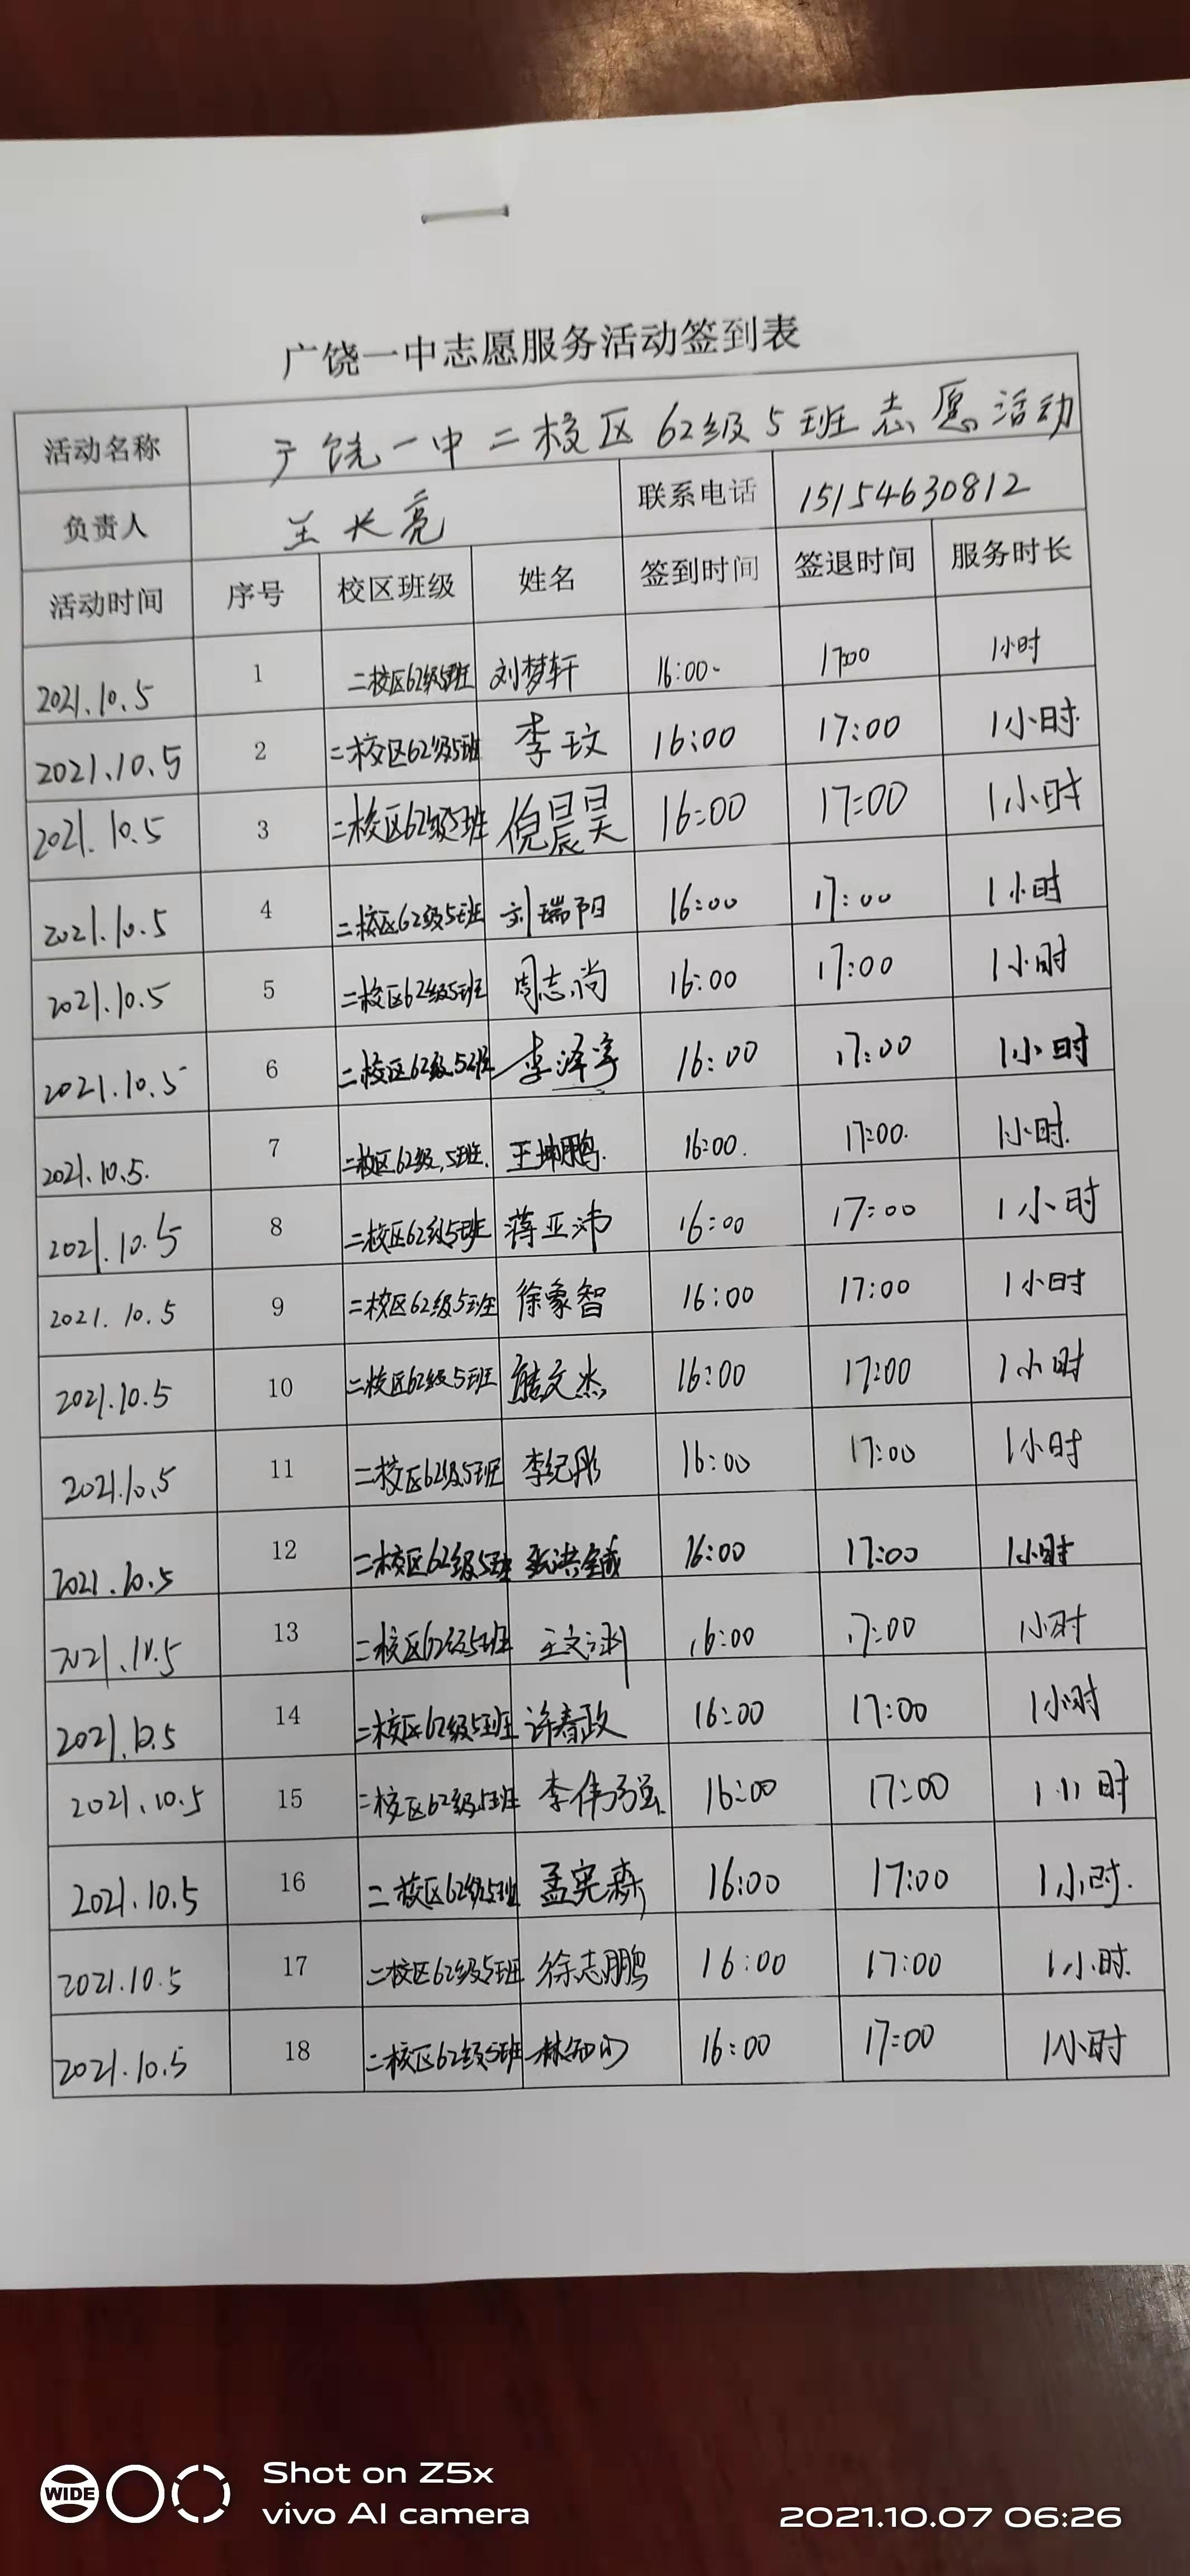 广饶一中志愿服务活动签到表
活动名称 广饶一中二校区62级5班志愿活动
负责人 王长亮 联系电话 15154630812
活动时间 序号 校区班级 姓名 签到时间 签退时间 服务时长
2021.10.5 1 二校区62级5班 刘梦轩 16:00 17:00 1小时
2021.10.5 2 二校区62级5班 李玟 16:00 17:00 1小时
2021.10.5 3 二校区62级5班 倪晨昊 16:00 17:00 1小时
2021.10.5 4 二校区62级5班 刘瑞阳 16:00 17:00 1小时
2021.10.5 5 二校区62级5班 周志尚 16:00 17:00 1小时
2021.10.5 6 二校区62级5班 李泽宇 16:00 17:00 1小时
2021.10.5. 7 二校区62级5班. 王坤鹏. 16:00. 17:00. 1小时.
2021.10.5 8 二校区62级5班 蒋亚沛 16:00 17:00 1小时
2021.10.5 9 二校区62级5班 徐象智 16:00 17:00 1小时
2021.10.5 10 二校区62级5班 熊文杰 16:00 17:00 1小时
2021.10.5 11 二校区62级5班 李纪彤 16:00 17:00 1小时
2021.10.5 12 二校区62级5班 张洪铖 16:00 17:00 1小时
2021.10.5 13 二校区62级5班 16:00 17:00 1小时
2021.10.5 14 二校区62级5班 许春政 16:00 17:00 1小时
2021.10.5 15 二校区62级5班 李伟强 16:00 17:00 1小时
2021.10.5 16 二校区62级5班 孟宪森 16:00 17:00 1小时.
2021.10.5 17 二校区62级5班 徐志鹏 16:00 17:00 1小时.
2021.10.5 18 二校区62级5班 16:00 17:00 1小时
WIDE
Shot on Z5x
vivo AI camera
2021.10.07 06:26